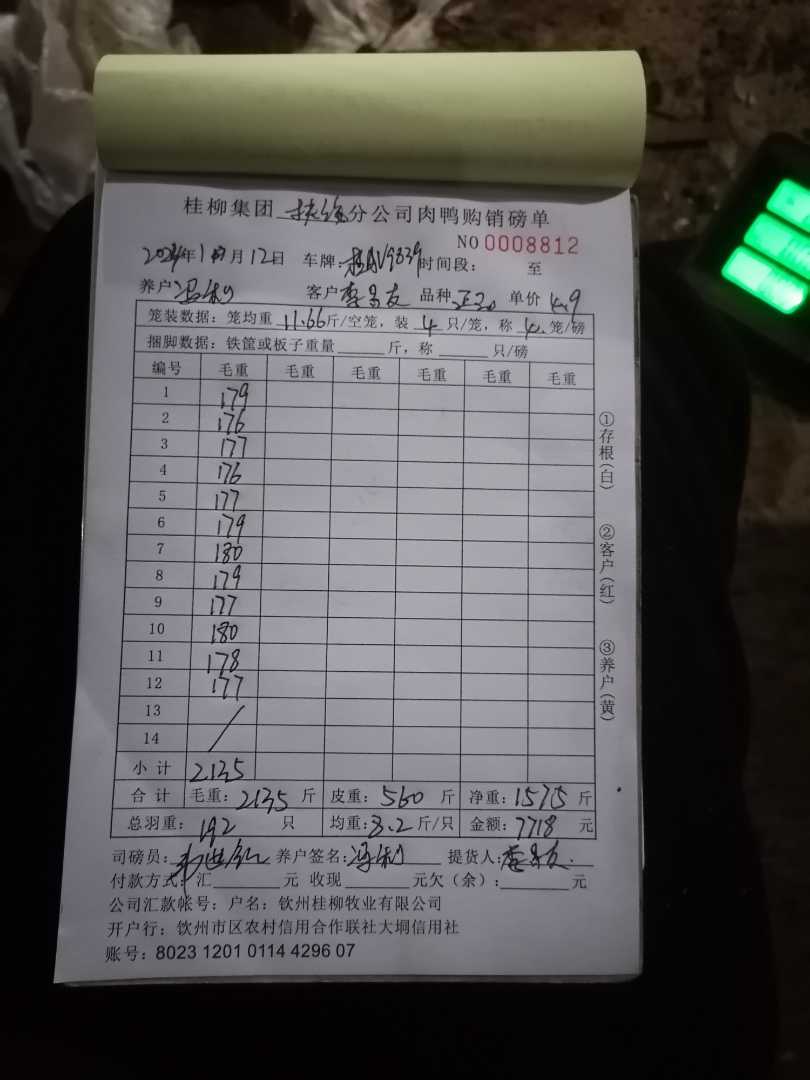 桂柳集团 扶绥 分公司肉鸭购销磅单
NO 0008812
2024年1月12日 车牌: 9339 时间段: 至
养户 冯利 客户 李易友 品种 单价 4.9
笼装数据: 笼均重 11.66 斤/空笼, 装 4 只/笼, 称 4 笼/磅
捆脚数据: 铁筐或板子重量 斤, 称 只/磅
编号 毛重 毛重 毛重 毛重 毛重 毛重
1 179
2 176
3 177
4 176
5 177
6 179
7 180
8 179
9 177
10 180
11 178
12 177
13
14
小计 2135
合计 毛重: 2135 斤 皮重: 560 斤 净重: 1575 斤
总羽重: 192 只 均重: 8.2 斤/只 金额: 7718 元
司磅员: 养户签名: 冯利 提货人: 李易友
付款方式: 汇 元 收现 元欠(余): 元
公司汇款帐号: 户名: 钦州桂柳牧业有限公司
开户行: 钦州市区农村信用合作联社大垌信用社
账号: 8023 1201 0114 4296 07
①存根(白)
②客户(红)
③养户(黄)